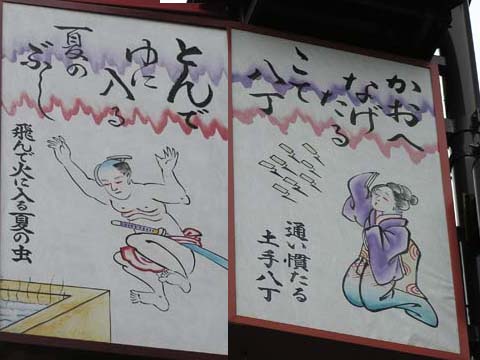 かおへ
なげたる
こて
八丁
通い慣たる
土手八丁
とんで
ゆに入る
夏の
ぶし
飛んで火に入る夏の虫